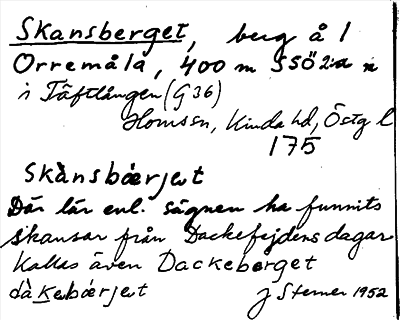 Skansberget, berg å 1
Orremåla, 400 m SSÖ 2:a n
i Täftlången (G 36)
Horn sn, Kinda hd, Östg l
175
Skànsbǽrjet
Där lär enl. sägnen ha funnits
skansar från Dackefejdens dagar
Kallas även Dackeberget
dàkebǽrjet
J Sterner 1952